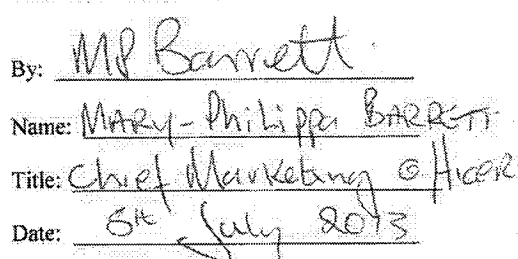 By: MP Barrett
Name: MARY-Philippa BARRETT
Title: Chief Marketing OFFicER
Date: 5th July 2013